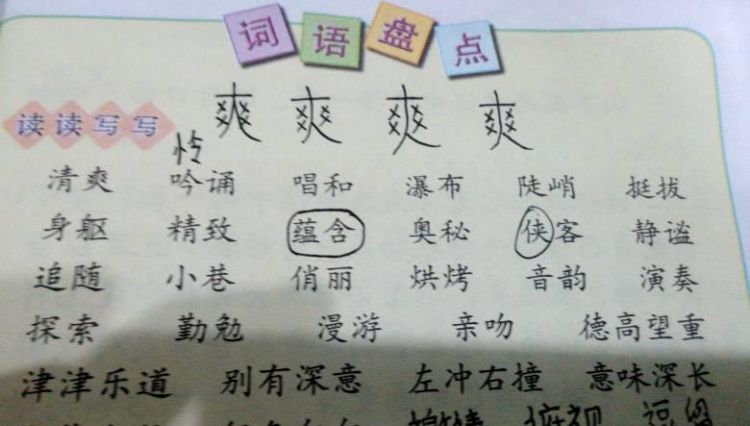 词语盘点
爽 爽 爽 爽
读读写写
怜
清爽 吟诵 唱和 瀑布 陡峭 挺拔
身躯 精致 蕴含 奥秘 侠客 静谧
追随 小巷 俏丽 烘烤 音韵 演奏
探索 勤勉 漫游 亲吻 德高望重
津津乐道 别有深意 左冲右撞 意味深长
俯视 逗留